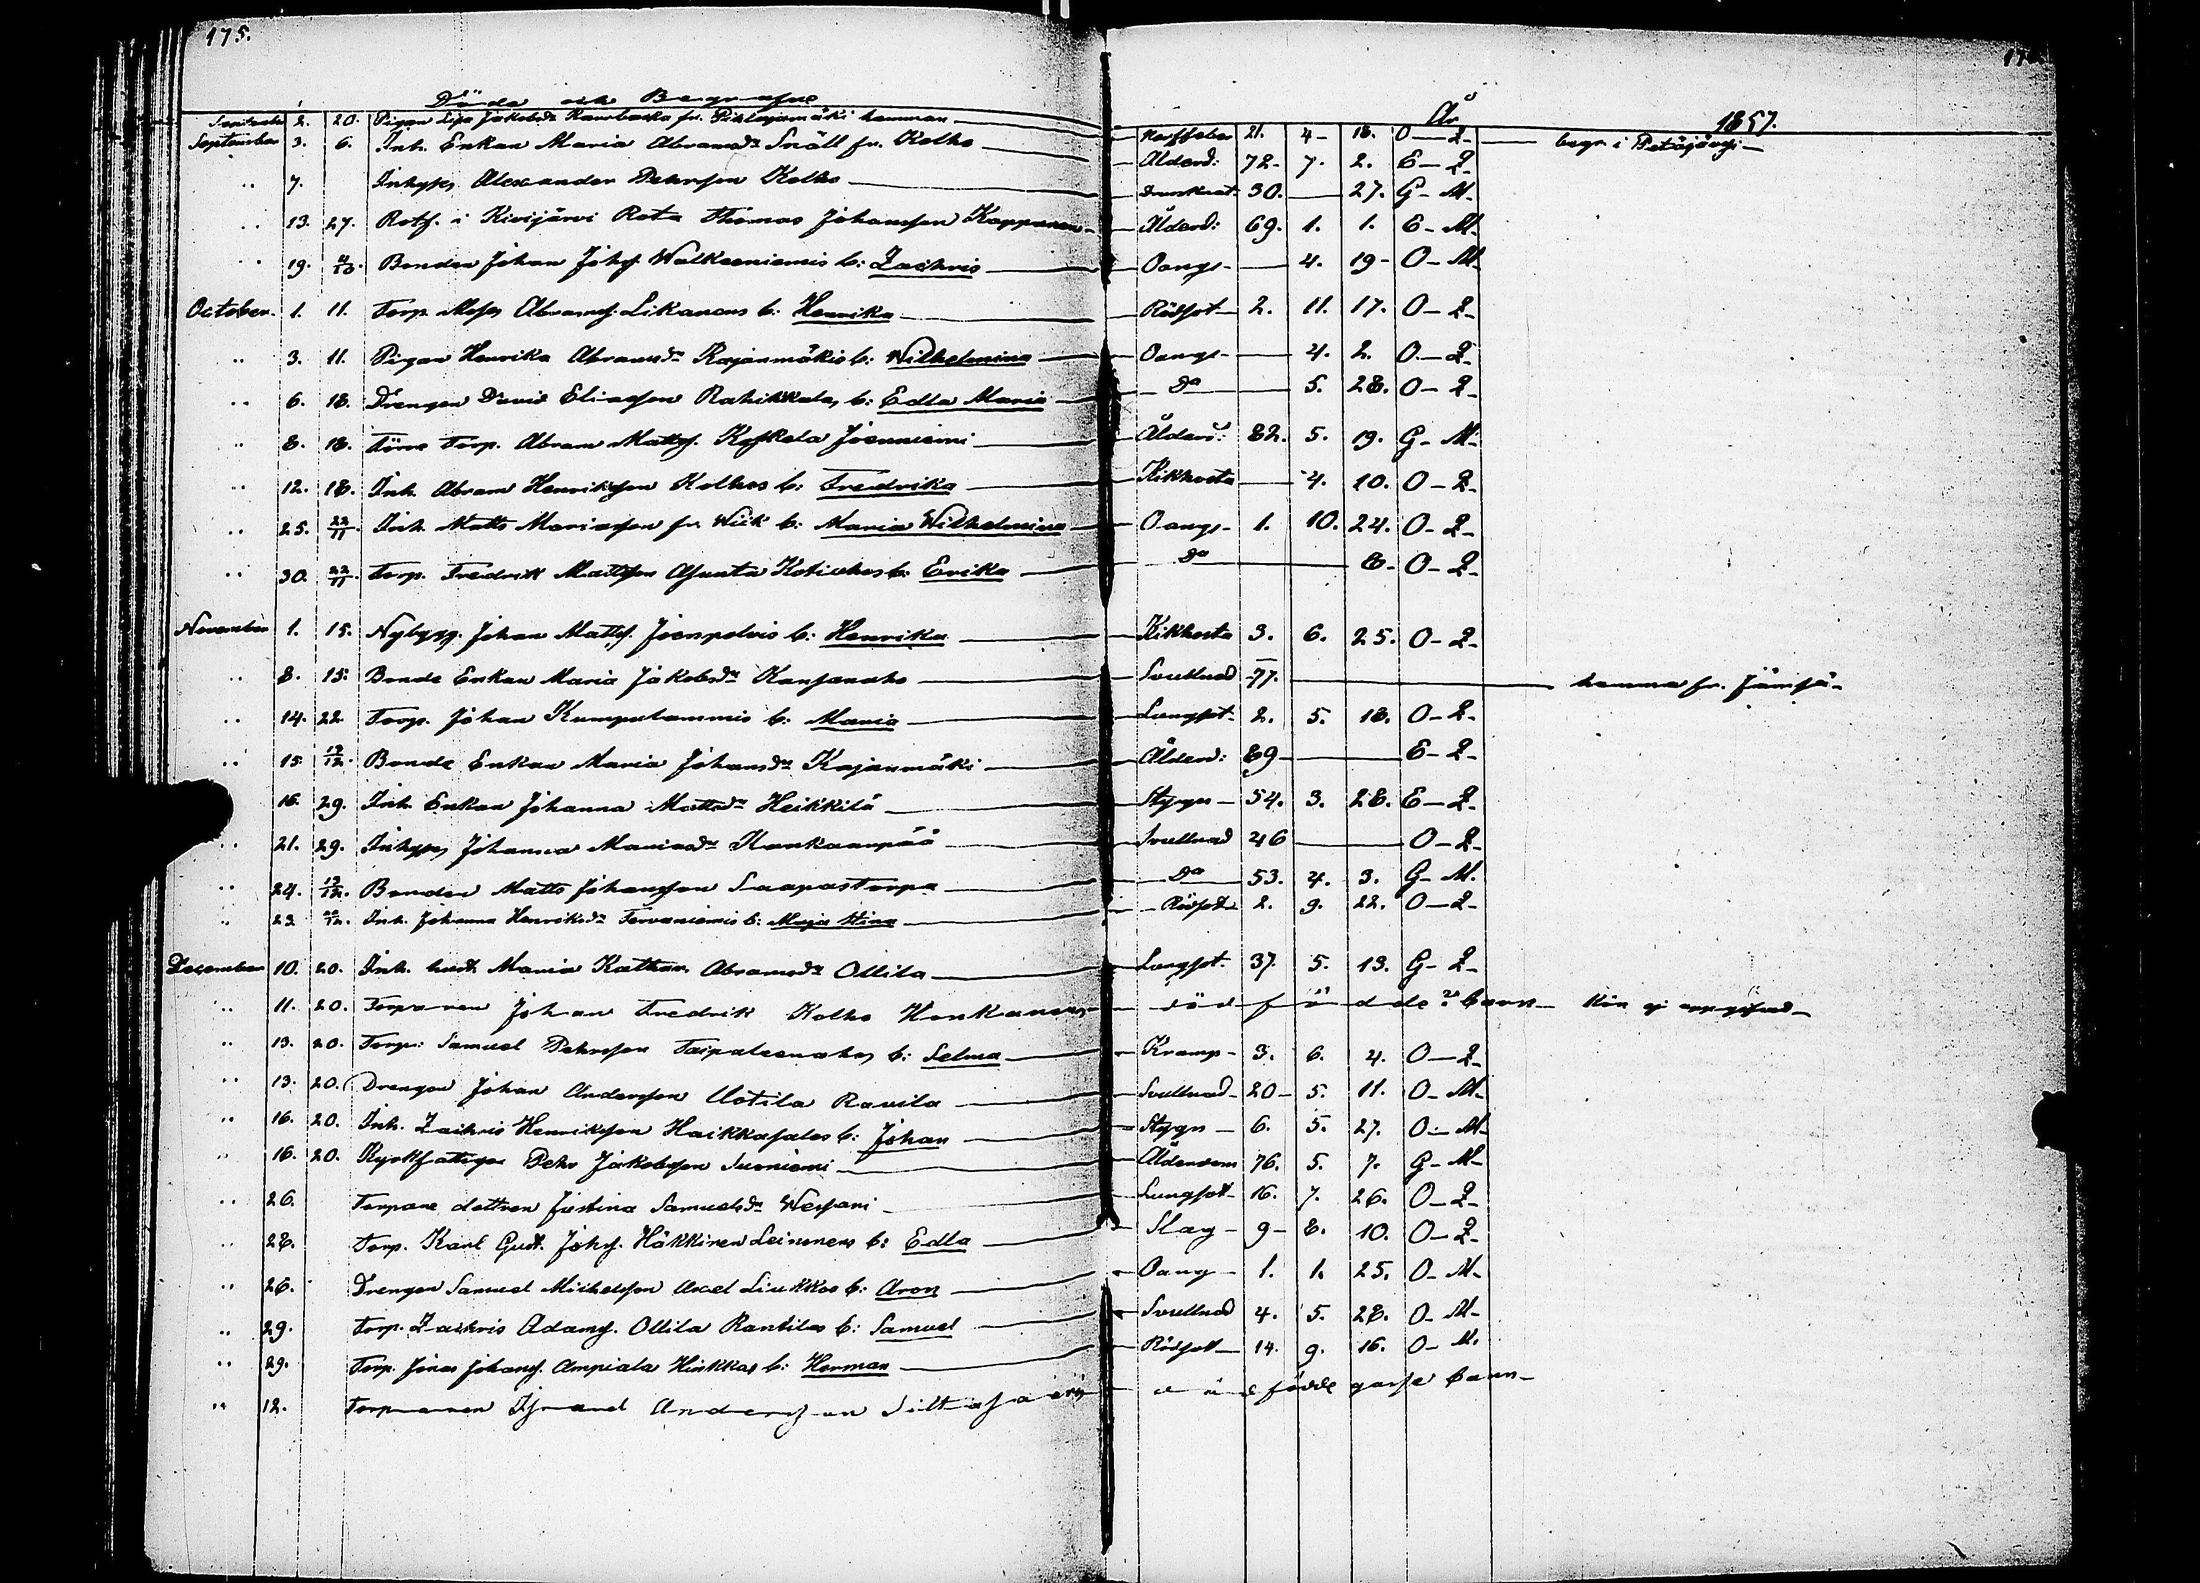 175.
Döda och Begrafne År 1857.
September 2. 20. Pigan Lisa Jakobsdr fr. Pihlajamäki hemman 21. 4 18. O Q begr. i Petäjävesi
September 3. 6. Inh. Enkan Maria Abramsdr Snäll fr. Kolho Ålderd: 72. 7. 2. E Q
" 7. Inhyses Alexander Pehrsson Kolho 30. 27. G M.
" 13. 27. Rotf. i Kivijärvi Rota Thomas Johansson Kopponen Ålderd: 69. 1. 1. E M.
" 19. 4/10. Bonden Johan Johs. Walkeeniemis b: Zachris Oangf 4. 19 O M.
October. 1. 11. Torp. Moses Abramss. Likanens b: Henrika Rödsot 2. 11. 17. O Q
" 3. 11. Pigan Henrika Abramsdr Rajanmäkis b: Wilhelmina Oangf 4. 2. O Q
" 6. 18. Drengen David Eliasson Rahikkala, b: Edla Maria Do 5. 28. O Q
" 8. 18. Förre Torp. Abram Matts. Koskela Joenniemi Ålderd: 82. 5. 19. G M.
" 12. 18. Inh. Abram Henriksson Kolhos b: Fredrika Kikhosta 4. 10. O Q
" 25. 22/11. Inh. Matts Mariasson fr. Wiik b: Maria Wilhelmina Oangf 1. 10. 24. O Q
" 30. 22/11. Torp. Fredrik Mattsson Asunta Kotiahos b: Erika Do 8. O Q
November 1. 15. Nybygg. Johan Matts. Joenpolvis b: Henrika Kikhosta 3. 6. 25. O Q
" 8. 15. Bonde Enkan Maria Jakobsdr Kansanaho Svullnad 77. hemma fr. Jämsä
" 14. 22. Torp. Johan Kumpulammis b: Maria Lungsot 2. 5. 18. O Q
" 15. 13/12. Bonde Enkan Maria Johansdr Kajanmäki Ålderd: 89 E Q
16. 29. Inh. Enkan Johanna Mattsdr Heikkilä Styng 54. 3. 28. E Q
" 21. 29. Inhyses Johanna Mariasdr Kankaanpää Svullnad 46 O Q
" 24. 13/12. Bonden Matts Johansson Saapastorpa Do 53. 4. 3. G M.
" 23 /12. Inh. Johanna Henriksdr Tervaniemis b: Maja Stina Rödsot 2. 9. 22. O Q
December 10. 20. Inh. hust. Maria Kathar. Abramsdr Ollila Lungsot 37. 5. 13. G Q
" 11. 20. Torparen Johan Fredrik Kolho Honkanens död född barn Kön ej uppgifvet
" 13. 20. Torp: Samuel Pehrsson Taipaleenahos b: Selma Kramp 3. 6. 4. O Q
" 13. 20. Drengen Johan Andersson Uotila Ravila Svullnad 20 5. 11. O M.
" 16. 20. Inh. Zachris Henriksson Haikkasalos b: Johan Styng 6. 5. 27. O M
" 16. 20. Kyrkfattige Pehr Jakobsson Surniemi Ålderdom 76. 5. 7. G M
" 26. Torpare dottren Justina Samuelsdr Wessari Lungsot 16. 7. 26. O Q
" 28. Torp. Karl Gust. Johs. Häkkinen Leinonens b: Edla Slag 9 8. 10. O Q
" 26. Drengen Samuel Michelsson Axel Liukkos b: Aron Oangf 1. 1. 25. O M.
" 29. Torp. Zachris Adams. Ollila Rantilas b: Samuel Svullnad 4. 5. 28. O M
" 29. Torp. Jonas Johans. Ampiala Hinkkas b: Herman Rödsot 14. 9. 16. O M.
" 12. Torparen Israel Andersson död födde gosse barn